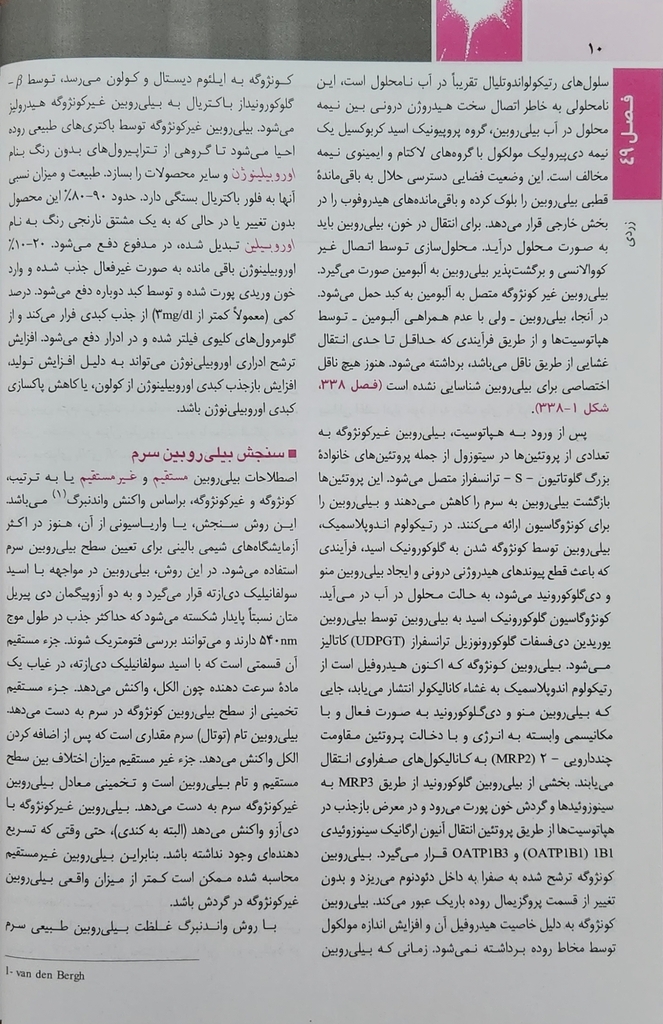 ۱۰
فصل ۴۹
زردی
سلول‌های رتیکولواندوتلیال تقریباً در آب نامحلول است، این
نامحلولی به خاطر اتصال سخت هیدروژن درونی بین نیمه
محلول در آب بیلی‌روبین، گروه پروپیونیک اسید کربوکسیل یک
نیمه دی‌پیرولیک مولکول با گروه‌های لاکتام و ایمینوی نیمه
مخالف است. این وضعیت فضایی دسترسی حلال به باقی‌ماندهٔ
قطبی بیلی‌روبین را بلوکه کرده و باقی‌مانده‌های هیدروفوب را در
بخش خارجی قرار می‌دهد. برای انتقال در خون، بیلی‌روبین باید
به صورت محلول درآید. محلول‌سازی توسط اتصال غیر
کووالانسی و برگشت‌پذیر بیلی‌روبین به آلبومین صورت می‌گیرد.
بیلی‌روبین غیر کونژوگه متصل به آلبومین به کبد حمل می‌شود.
در آنجا، بیلی‌روبین ـ ولی با عدم همراهی آلبومین ـ توسط
هپاتوسیت‌ها و از طریق فرآیندی که حداقل تا حدی انتقال
غشایی از طریق ناقل می‌باشد، برداشته می‌شود. هنوز هیچ ناقل
اختصاصی برای بیلی‌روبین شناسایی نشده است (فصل ۳۳۸،
شکل ۱-۳۳۸).
پس از ورود به هپاتوسیت، بیلی‌روبین غیرکونژوگه به
تعدادی از پروتئین‌ها در سیتوزول از جمله پروتئین‌های خانوادهٔ
بزرگ گلوتاتیون - S - ترانسفراز متصل می‌شود. این پروتئین‌ها
بازگشت بیلی‌روبین به سرم را کاهش می‌دهند و بیلی‌روبین را
برای کونژوگاسیون ارائه می‌کنند. در رتیکولوم اندوپلاسمیک،
بیلی‌روبین توسط کونژوگه شدن به گلوکورونیک اسید، فرآیندی
که باعث قطع پیوندهای هیدروژنی درونی و ایجاد بیلی‌روبین منو
و دی‌گلوکورونید می‌شود، به حالت محلول در آب در می‌آید.
کونژوگاسیون گلوکورونیک اسید به بیلی‌روبین توسط بیلی‌روبین
یوریدین دی‌فسفات گلوکورونوزیل ترانسفراز (UDPGT) کاتالیز
می‌شود. بیلی‌روبین کونژوگه که اکنون هیدروفیل است از
رتیکولوم اندوپلاسمیک به غشاء کانالیکولر انتشار می‌یابد، جایی
که بیلی‌روبین منو و دی‌گلوکورونید به صورت فعال و با
مکانیسمی وابسته به انرژی و با دخالت پروتئین مقاومت
چنددارویی - ۲ (MRP2) به کانالیکول‌های صفراوی انتقال
می‌یابند. بخشی از بیلی‌روبین گلوکورونید از طریق MRP3 به
سینوزوئیدها و گردش خون پورت می‌رود و در معرض بازجذب در
هپاتوسیت‌ها از طریق پروتئین انتقال آنیون ارگانیک سینوزوئیدی
1B1 (OATP1B1) و OATP1B3 قرار می‌گیرد. بیلی‌روبین
کونژوگه ترشح شده به صفرا به داخل دئودنوم می‌ریزد و بدون
تغییر از قسمت پروگزیمال روده باریک عبور می‌کند. بیلی‌روبین
کونژوگه به دلیل خاصیت هیدروفیل آن و افزایش اندازه مولکول
توسط مخاط روده برداشته نمی‌شود. زمانی که بیلی‌روبین
کونژوگه به ایلئوم دیستال و کولون می‌رسد، توسط β -
گلوکورونیداز باکتریال به بیلی‌روبین غیرکونژوگه هیدرولیز
می‌شود. بیلی‌روبین غیرکونژوگه توسط باکتری‌های طبیعی روده
احیا می‌شود تا گروهی از تتراپیرول‌های بدون رنگ بنام
اوروبیلینوژن و سایر محصولات را بسازد. طبیعت و میزان نسبی
آنها به فلور باکتریال بستگی دارد. حدود ۹۰-۸۰٪ این محصول
بدون تغییر یا در حالی که به یک مشتق نارنجی رنگ به نام
اوروبیلین تبدیل شده، در مدفوع دفع می‌شود. ۲۰-۱۰٪
اوروبیلینوژن باقی مانده به صورت غیرفعال جذب شده و وارد
خون وریدی پورت شده و توسط کبد دوباره دفع می‌شود. درصد
کمی (معمولاً کمتر از ۳mg/dl) از جذب کبدی فرار می‌کند و از
گلومرول‌های کلیوی فیلتر شده و در ادرار دفع می‌شود. افزایش
ترشح ادراری اوروبیلی‌نوژن می‌تواند به دلیل افزایش تولید،
افزایش بازجذب کبدی اوروبیلینوژن از کولون، یا کاهش پاکسازی
کبدی اوروبیلی‌نوژن باشد.
■ سنجش بیلی‌روبین سرم
اصطلاحات بیلی‌روبین مستقیم و غیرمستقیم یا به ترتیب،
کونژوگه و غیرکونژوگه، براساس واکنش واندنبرگ(۱) می‌باشد.
این روش سنجش، یا واریاسیونی از آن، هنوز در اکثر
آزمایشگاه‌های شیمی بالینی برای تعیین سطح بیلی‌روبین سرم
استفاده می‌شود. در این روش، بیلی‌روبین در مواجهه با اسید
سولفانیلیک دی‌ازته قرار می‌گیرد و به دو آزوپیگمان دی پیریل
متان نسبتاً پایدار شکسته می‌شود که حداکثر جذب در طول موج
۵۴۰nm دارند و می‌توانند بررسی فتومتریک شوند. جزء مستقیم
آن قسمتی است که با اسید سولفانیلیک دی‌ازته، در غیاب یک
مادهٔ سرعت دهنده چون الکل، واکنش می‌دهد. جزء مستقیم
تخمینی از سطح بیلی‌روبین کونژوگه در سرم به دست می‌دهد.
بیلی‌روبین تام (توتال) سرم مقداری است که پس از اضافه کردن
الکل واکنش می‌دهد. جزء غیر مستقیم میزان اختلاف بین سطح
مستقیم و تام بیلی‌روبین است و تخمینی معادل بیلی‌روبین
غیرکونژوگه سرم به دست می‌دهد. بیلی‌روبین غیرکونژوگه با
دی‌آزو واکنش می‌دهد (البته به کندی)، حتی وقتی که تسریع
دهنده‌ای وجود نداشته باشد. بنابراین بیلی‌روبین غیرمستقیم
محاسبه شده ممکن است کمتر از میزان واقعی بیلی‌روبین
غیرکونژوگه در گردش باشد.
با روش واندنبرگ غلظت بیلی‌روبین طبیعی سرم
1- van den Bergh